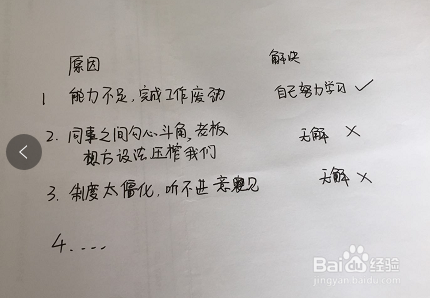 原因 解决
1 能力不足,完成工作废劲 自己努力学习 ✓
2. 同事之间勾心斗角,老板 无解 ×
想方设法压榨我们
3. 制度太僵化,听不进意见 无解 ×
4.....
Baidu 经验
jingyan.baidu.com